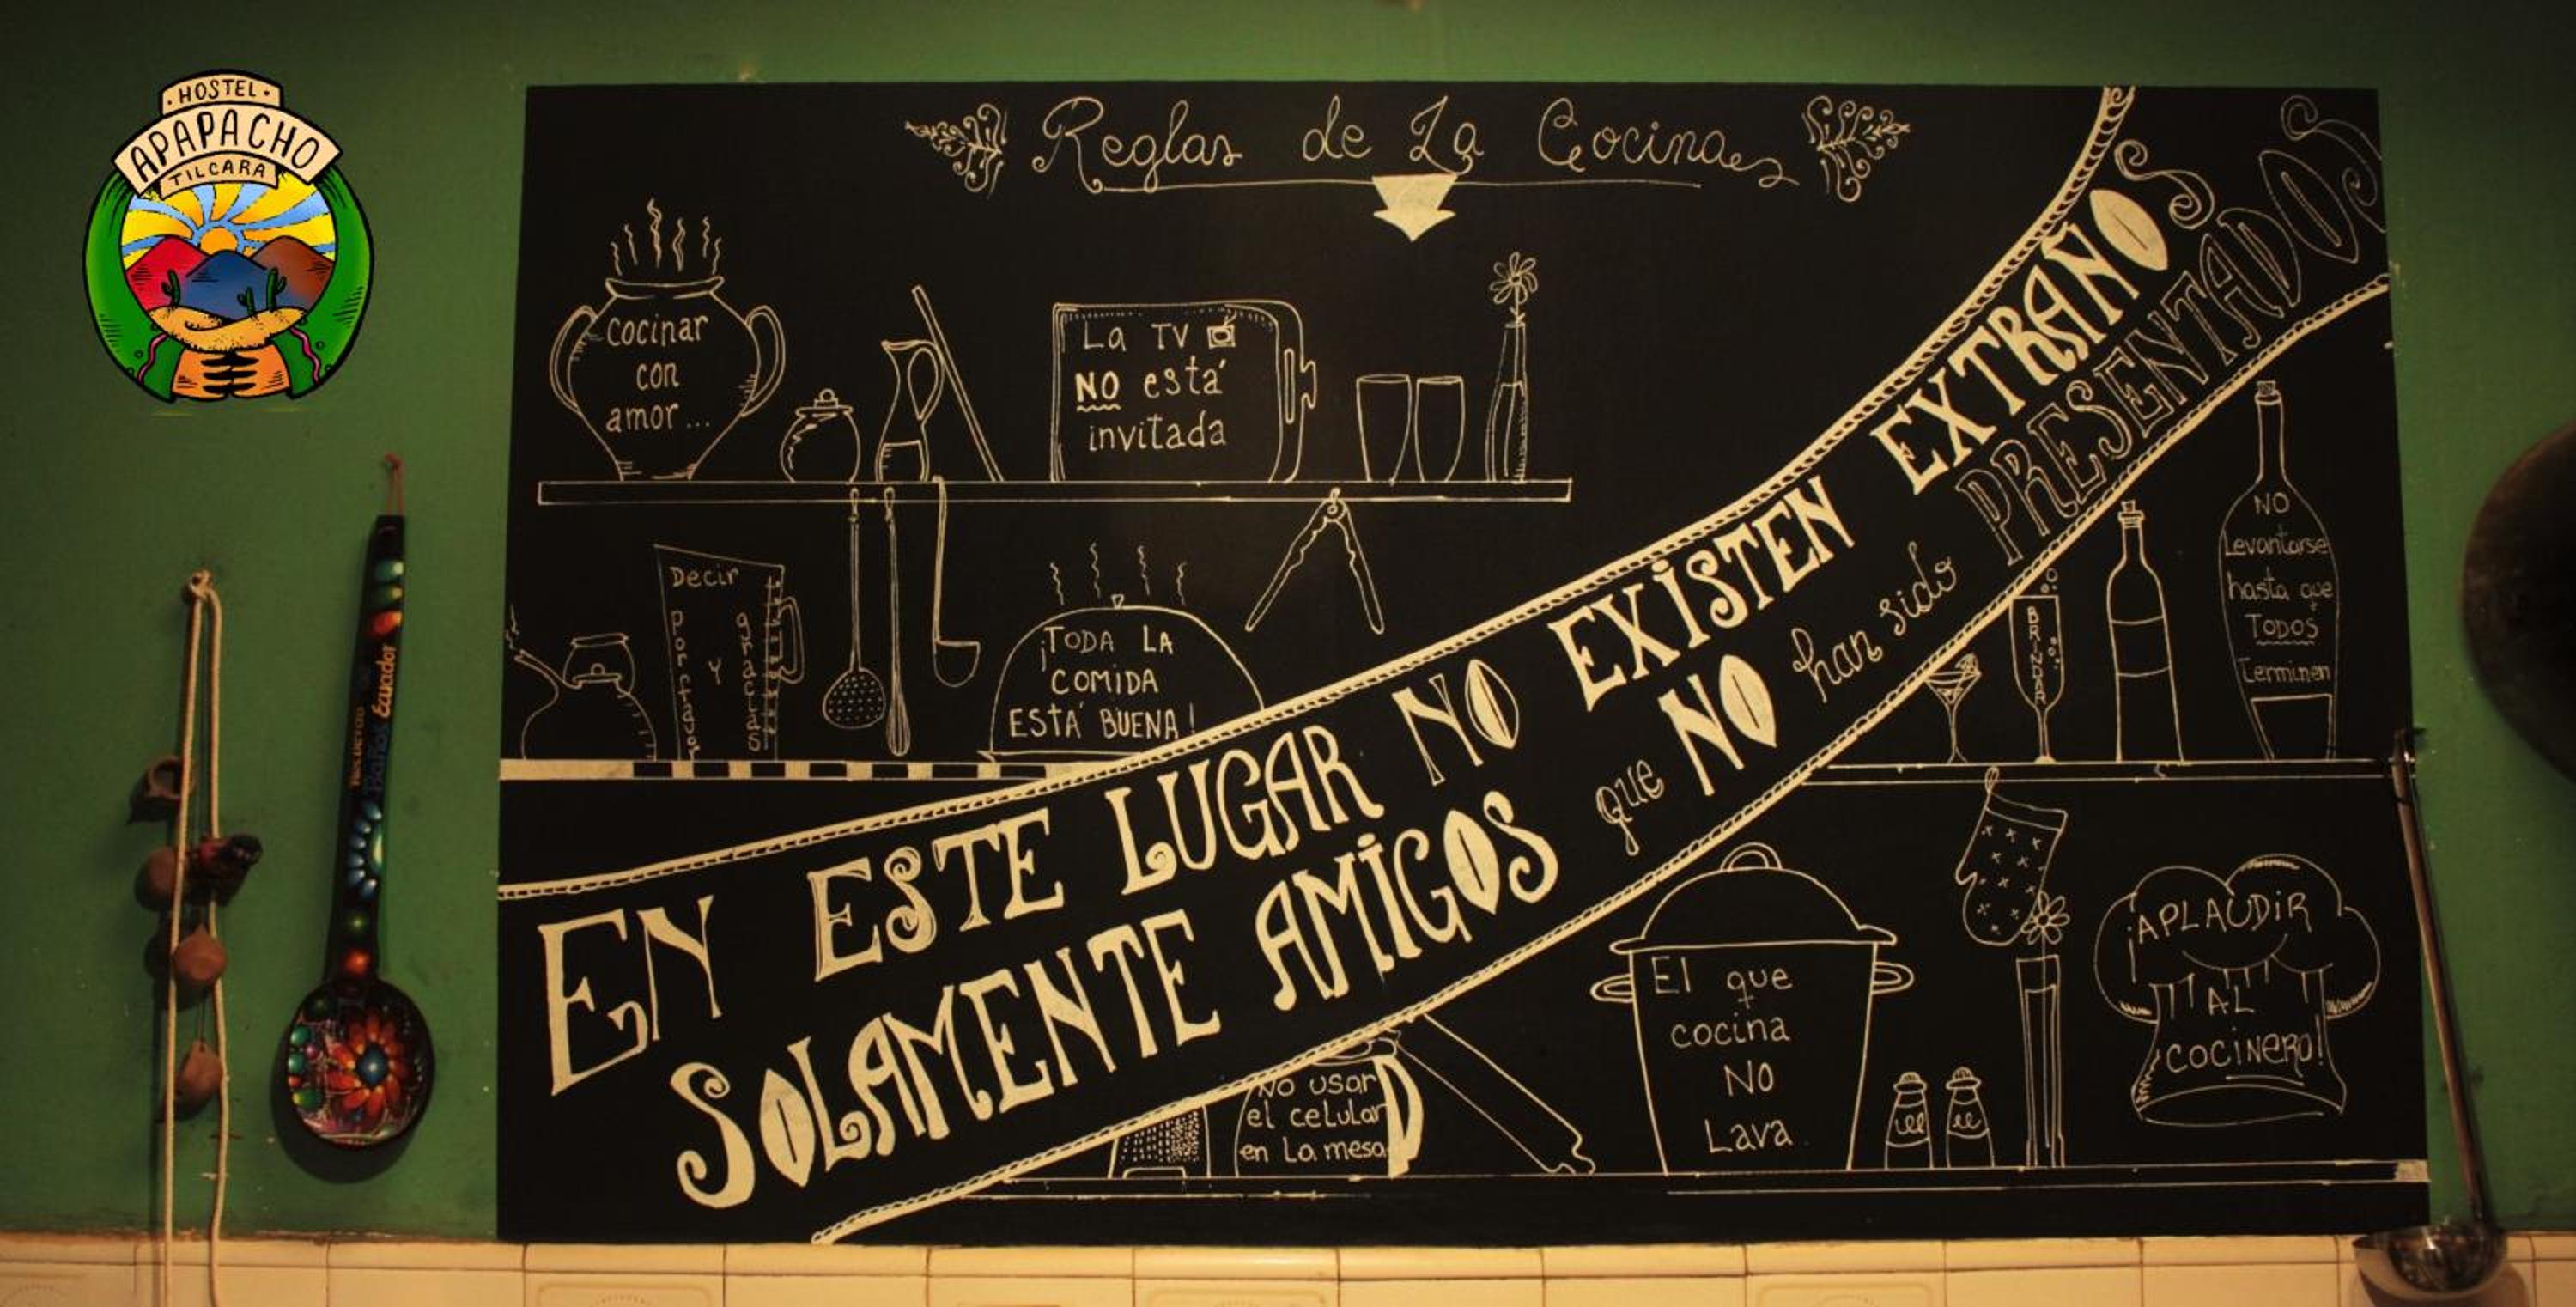 · HOSTEL ·
APAPACHO
TILCARA
Reglas de La Cocina
Cocinar
con
amor...
La TV
NO está
invitada
Decir
por favor
Y
gracias
¡TODA LA
COMIDA
ESTÁ BUENA!
EN ESTE LUGAR NO EXISTEN EXTRAÑOS
SOLAMENTE AMIGOS que NO han sido PRESENTADOS
BRINDAR
NO
Levantarse
hasta que
TODOS
Terminen
No usar
el celular
en La mesa
El que
cocina
NO
Lava
¡APLAUDIR
AL
COCINERO!
Baños Ecuador